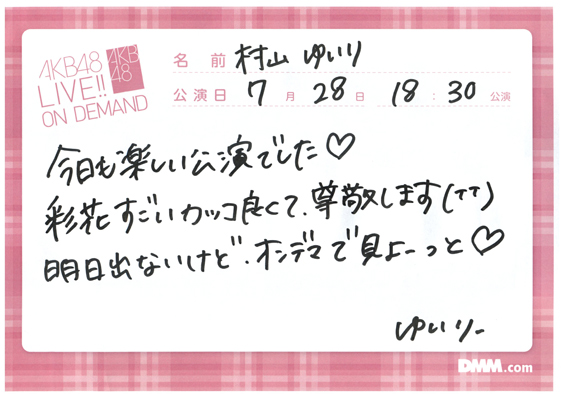 AKB48
LIVE!!
ON DEMAND
AKB
48
名前 村山 ゆいり
公演日 7月 28日 18:30 公演
今日も楽しい公演でした♡
彩花すごいカッコ良くて、尊敬します(TT)
明日出ないけど、オンデマで見よーっと♡
ゆいりー
DMM.com